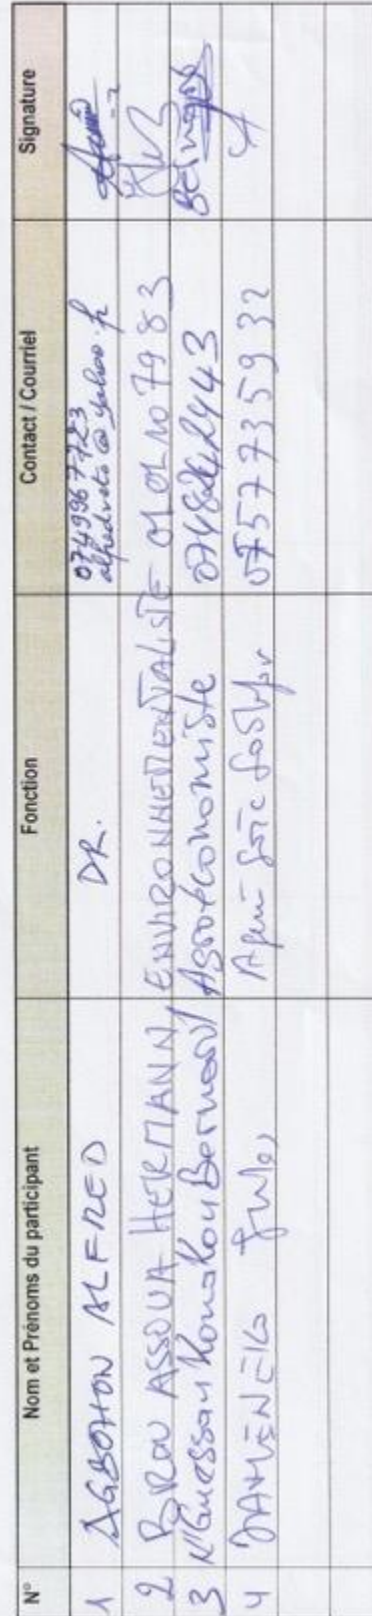 N° Nom et Prénoms du participant Fonction Contact / Courriel Signature
1 AGBOHON ALFRED DR. 0749967723
alfredoto@yahoo.fr
2 BROU ASSOUA HERMANN ENVIRONNEMENTALISTE 0101107983
3 N'Guessan Konakou Bernard Agroéconomiste 0748242443
4 Jules 0757735932